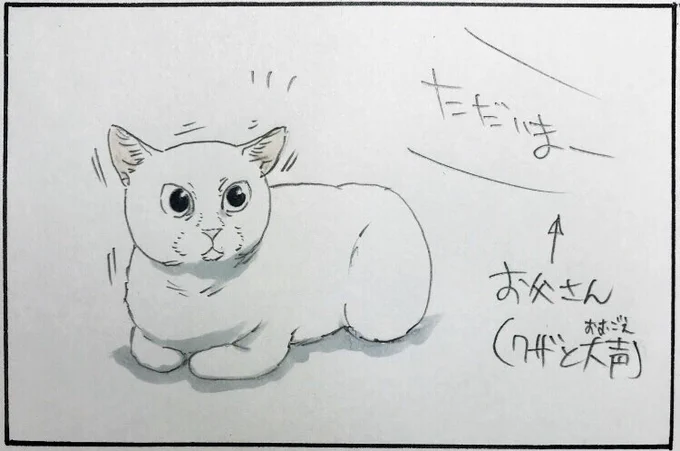 ただいまー
お父さん
(ワザと大声)
おおごえ